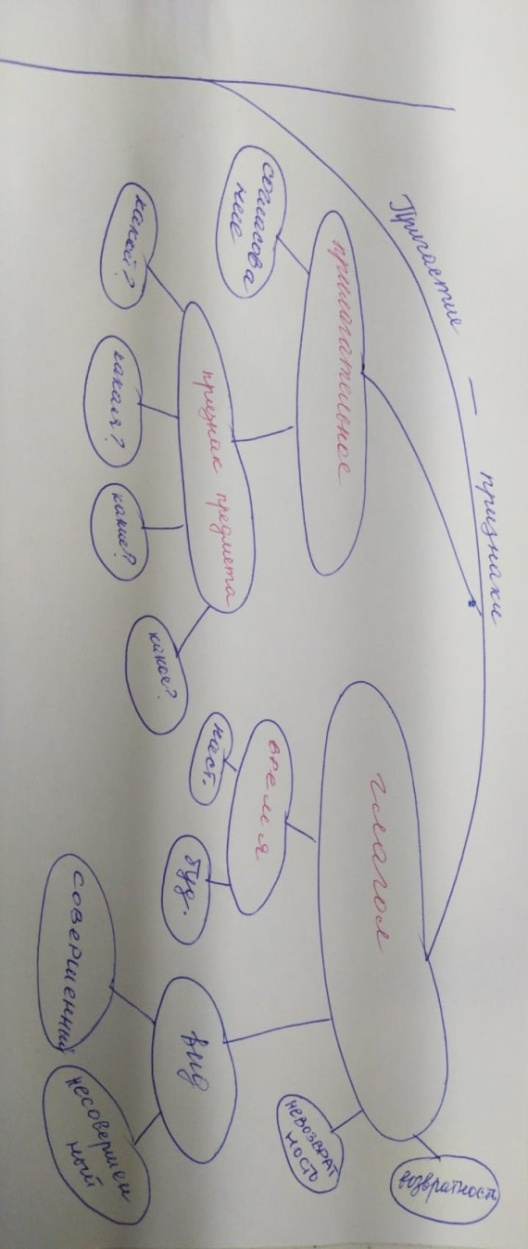 Причастие — признаки
прилагательное
согласова
ние
признак предмета
какой?
какая?
какие?
какое?
глагол
время
наст.
буд.
вид
совершенный
несовершен
ный
невозврат
ность
возвратность